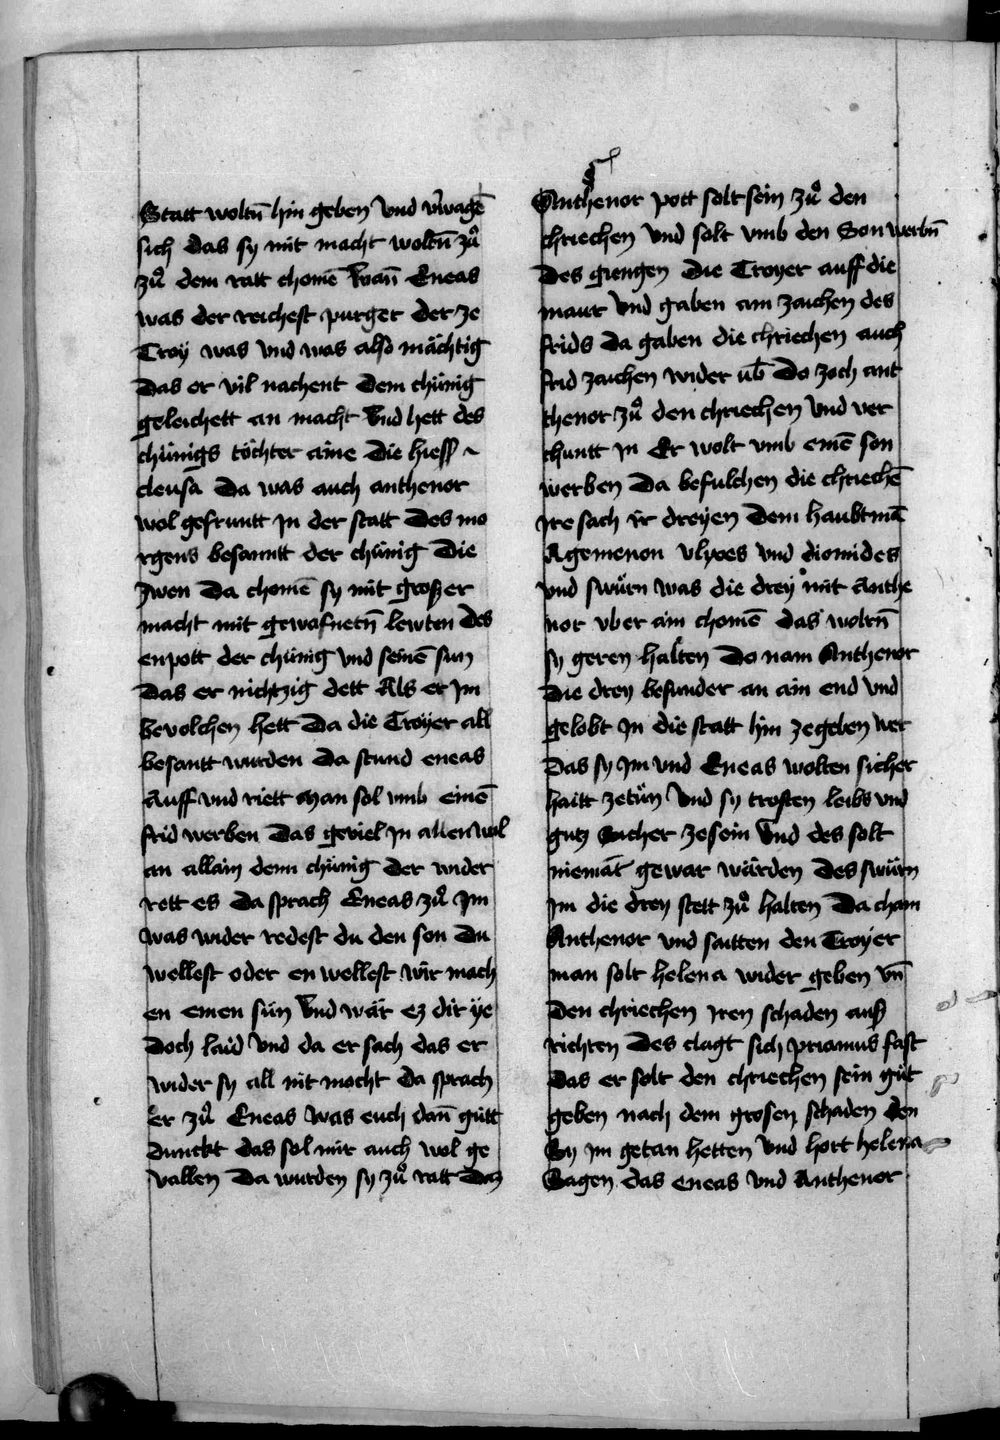 Statt woltn̄ hin geben vnd v̾wagē
sich das sy mit macht woltn̄ zů
zů dem ratt chomē wan̄ Eneas
was der reichest purger der ze
Troy was vnd was also mächtig
das er vil nachent dem chünig
geleichett an macht vnd hett des
chünigs töchter aine die hiess ~
cleusa Da was auch anthenor
wol gefruntt jn der statt Des mo
rgens besanntt der chünig die
zwen Da chomē sy mit groſzer
macht mit gewafnetn̄ lewten des
enpott der chünig vnd seinē sun
das er nichtzig dett Als er jm
bevolchen hett Da die Troyer all
besantt wurden Da stund eneas
Auff vnd riett man sol vmb einē
frid werben Das geviel jn allen wol
an allain dem chünig der wider
rett es Da sprach Eneas zů jm
was wider redest du den son Du
wellest oder en wellest wir mach
en einen sün vnd wär ez dir ye
doch laid vnd da er sach das er
wider sy all nit mocht da sprach
er zů Eneas was euch dan̄ gütt
dunckt das sol mir auch wol ge
vallen Da wurden sy zů ratt daz
Anthenor pott solt sein zů den
chriechen vnd solt vmb den Son werbn̄
Des giengen die Troyer auff die
maur vnd gaben ain zaichen des
frids da gaben die chriechen auch
frid zaichen wider Do zoch ant
thenor zů den chriechen vnd ver
chuntt jn Er wolt vmb einē son
werben Da befulchen die chriechē
jre sach ir dreyen dem haubtmā
Agemenon vlyxes vnd diomides
vnd swürn was die drey mit Anthe
nor vber ain chomē das woltn̄
sy geren halten Do nam Anthenor
die drey besunder an ain end vnd
gelobt jn die statt hin zegeben wer
das sy jm vnd Eneas wolten sicher
haitt zetün vnd sy trosten leibs vnd
gutz Sicher zesein vnd des solt
niemāt gewar würden des swürn
jm die drey stett zů halten Da cham
Anthenor vnd saitten den Troyer
man solt helena wider geben vn̄
den chriechen jren schaden auſz
richten Des clagt sich priamus fast
das er solt den chriechen sein güt
geben nach dem grosen schaden den
Sy jm getan hetten vnd hort helena
Sagen das eneas vnd Anthenor